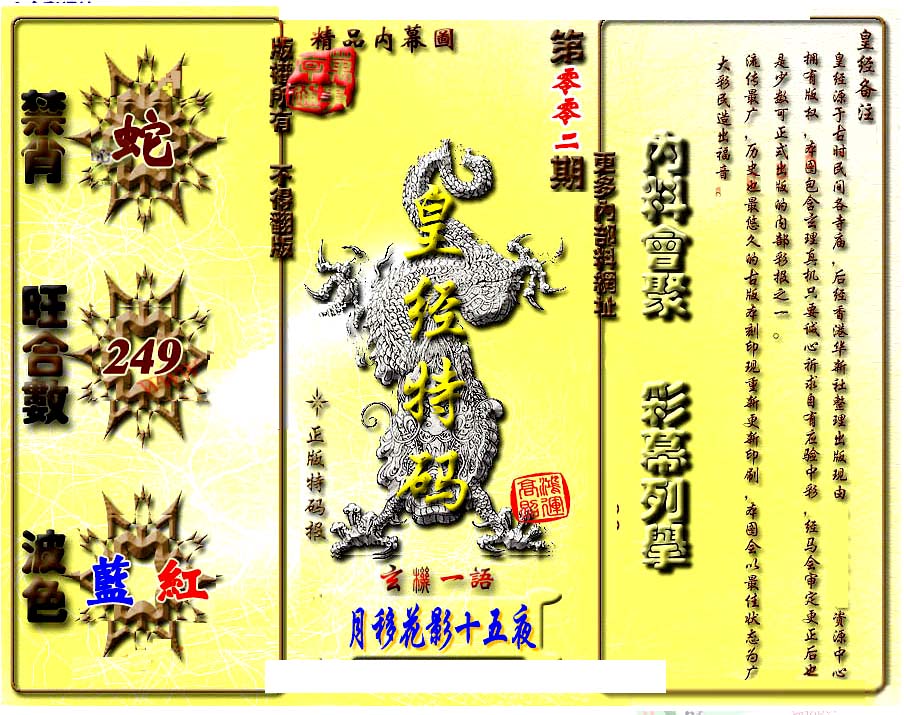 精品內幕圖
版權所有 不得翻版
第零零二期
更多內部料網址
禁肖
蛇
旺合數
249
波色
藍 紅
皇经特码
正版特码报
鴻運高照
玄機一語
月移花影十五夜
內料會聚
彩幕列舉
皇经备注
皇经源于古时民间各寺庙，后经香港华新社整理出版现由 资源中心
拥有版权，本图包含玄理真机只要诚心祈求自有应验中彩，经马会审定更正后也
是少数可正式出版的内部彩报之一。
流传最广，历史也最悠久的古版本刻印现重新更新印刷，本图会以最佳状态为广
大彩民造出福音